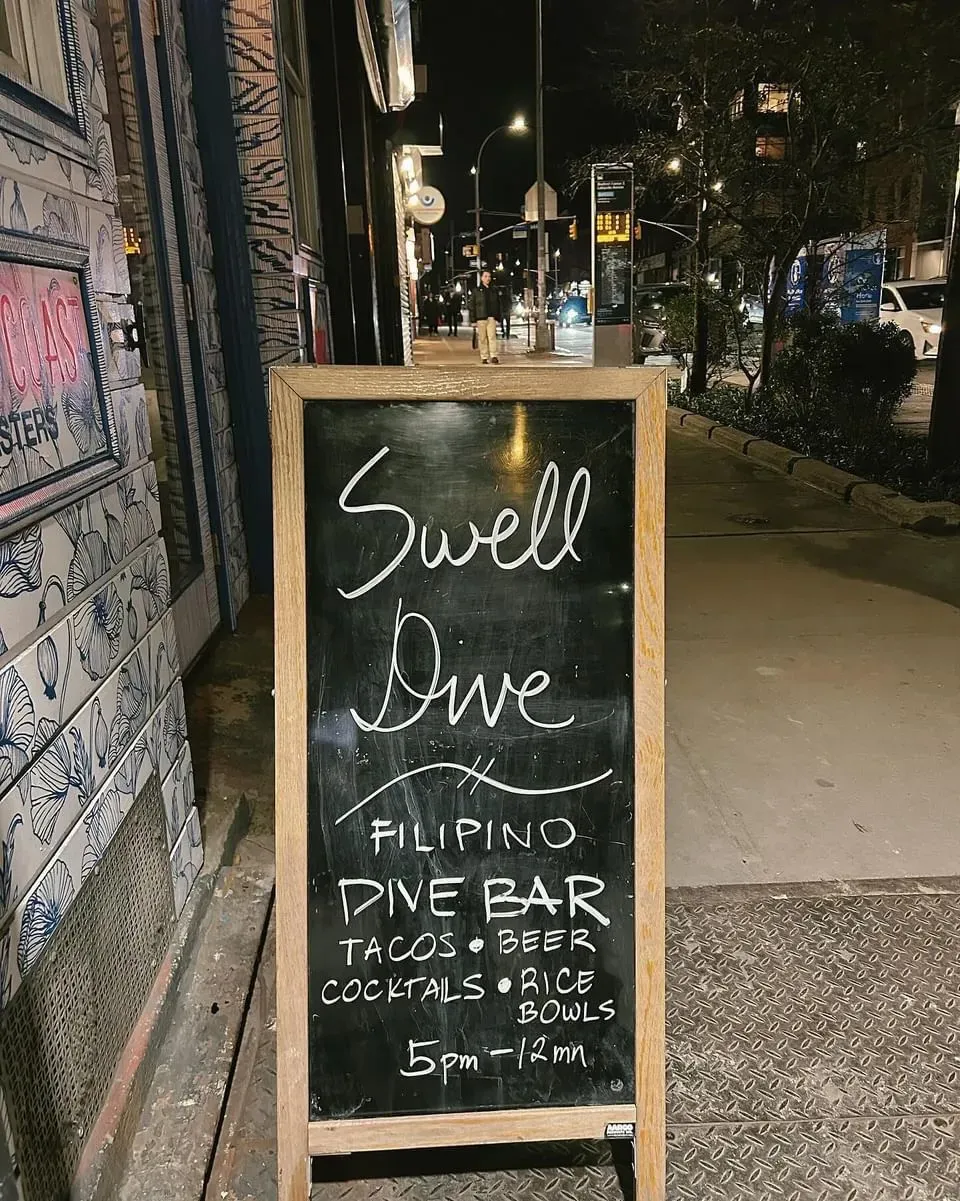 COAST
STERS
Swell
Dive
FILIPINO
DIVE BAR
TACOS • BEER
COCKTAILS • RICE
BOWLS
5pm – 12mn
AARCO